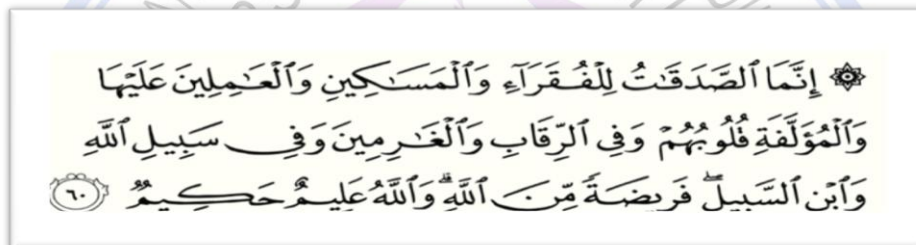 ۞ إِنَّمَا ٱلصَّدَقَـٰتُ لِلْفُقَرَآءِ وَٱلْمَسَـٰكِينِ وَٱلْعَـٰمِلِينَ عَلَيْهَا
وَٱلْمُؤَلَّفَةِ قُلُوبُهُمْ وَفِى ٱلرِّقَابِ وَٱلْغَـٰرِمِينَ وَفِى سَبِيلِ ٱللَّهِ
وَٱبْنِ ٱلسَّبِيلِ ۖ فَرِيضَةً مِّنَ ٱللَّهِ ۗ وَٱللَّهُ عَلِيمٌ حَكِيمٌ ٦٠